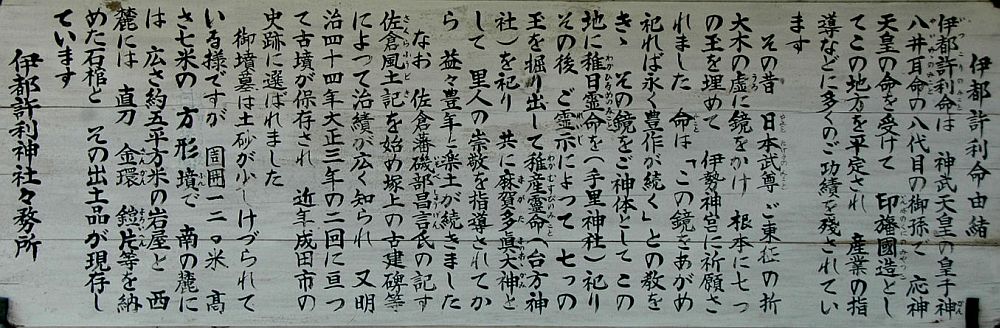 伊都許利命由緒
伊都許利命は　神武天皇の皇子神
八井耳命の八代目の御孫で　応神
天皇の命を受けて　印旛國造とし
てこの地方を平定され　産業の指
導などに多くのご功績を残されてい
ます
その昔　日本武尊　ご東征の折
大木の虚に鏡をかけ　根本に七つ
の玉を埋めて　伊勢神宮に祈願さ
れました　命は「この鏡をあがめ
祀れば永く豊作が続く」との教を
きゝ　その鏡をご神体としてこの
地に稚日霊命を（手里神社）祀り
その後　ご霊示によって　七つの
玉を掘り出して稚産霊命（台方神
社）を祀り　共に麻賀多眞大神と
して　里人の崇敬を指導されてか
ら　益々豊年と楽土が続きました
なお　佐倉藩磯部昌言氏の記す
佐倉風土記を始め塚上の古建碑等
によって治績が広く知られ　又明
治四十四年大正三年の二回に亘っ
て古墳が保存され　近年成田市の
史跡に選ばれました
御墳墓は土砂が少しけづられて
いる様ですが　周囲一二〇米　高
さ七米の　方形墳で　南の麓に
は　広さ約五平方米の岩屋と　西
麓には　直刀　金環　鎧片等を納
めた石棺と　その出土品が現存し
ています
伊都許利神社々務所